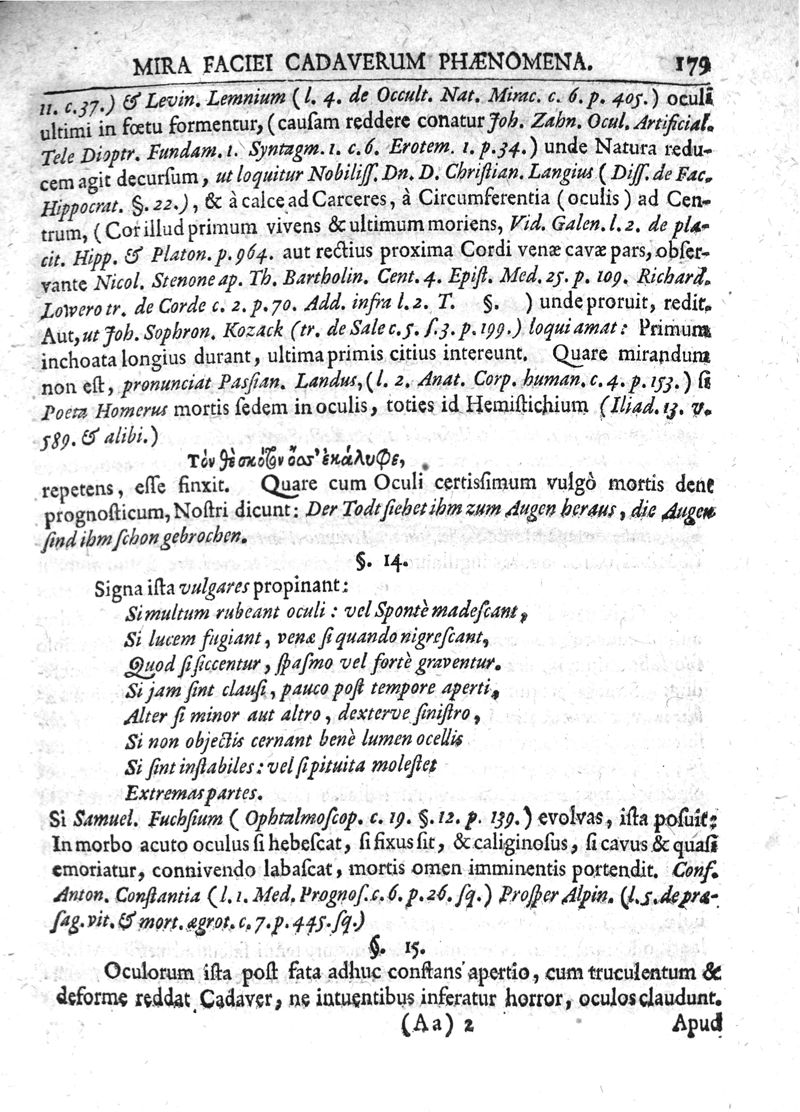 MIRA FACIEI CADAVERUM PHÆNOMENA. 179
11. c.37.) & Levin. Lemnium (l. 4. de Occult. Nat. Mirac. c. 6. p. 405.) oculi
ultimi in fœtu formentur, (cauſam reddere conatur Joh. Zahn. Ocul. Artificial.
Tele Dioptr. Fundam. 1. Syntagm. 1. c. 6. Erotem. 1. p. 34.) unde Natura redu-
cem agit decurſum, ut loquitur Nobiliſſ. Dn. D. Chriſtian. Langius (Diſſ. de Fac.
Hippocrat. §. 22.), & à calce ad Carceres, à Circumferentia (oculis) ad Cen-
trum, (Cor illud primum vivens & ultimum moriens, Vid. Galen. l. 2. de pla-
cit. Hipp. & Platon. p. 964. aut rectius proxima Cordi venæ cavæ pars, obſer-
vante Nicol. Stenone ap. Th. Bartholin. Cent. 4. Epiſt. Med. 25. p. 109. Richard.
Lowero tr. de Corde c. 2. p. 70. Add. infra l. 2. T. §. ) unde proruit, redit.
Aut, ut Joh. Sophron. Kozack (tr. de Sale c. 5. ſ. 3. p. 199.) loqui amat: Primum
inchoata longius durant, ultima primis citius intereunt. Quare mirandum
non eſt, pronunciat Paſsian. Landus, (l. 2. Anat. Corp. human. c. 4. p. 153.) ſi
Poeta Homerus mortis ſedem in oculis, toties id Hemiſtichium (Iliad. 13. v.
589. & alibi.)
ἐκάλυφε,
repetens, eſſe finxit. Quare cum Oculi certiſſimum vulgò mortis dent
prognoſticum, Noſtri dicunt: Der Todt ſiehet ihm zum Augen heraus, die Augen
ſind ihm ſchon gebrochen.
§. 14.
Signa iſta vulgares propinant:
Si multum rubeant oculi: vel Spontè madeſcant,
Si lucem fugiant, venæ ſi quando nigreſcant,
Quod ſi ſiccentur, ſpaſmo vel fortè graventur.
Si jam ſint clauſi, pauco poſt tempore aperti,
Alter ſi minor aut altro, dexterve ſiniſtro,
Si non objectis cernant benè lumen ocellis
Si ſint inſtabiles: vel ſi pituita moleſtet
Extremas partes.
Si Samuel. Fuchſium (Ophtalmoſcop. c. 19. §. 12. p. 139.) evolvas, iſta poſuit:
In morbo acuto oculus ſi hebeſcat, ſi fixus ſit, & caliginoſus, ſi cavus & quaſi
emoriatur, connivendo labaſcat, mortis omen imminentis portendit. Conf.
Anton. Conſtantia (l. 1. Med. Prognoſ. c. 6. p. 26. ſq.) Proſper Alpin. (l. 5. de præ-
ſag. vit. & mort. ægrot. c. 7. p. 445. ſq.)
§. 15.
Oculorum iſta poſt fata adhuc conſtans apertio, cum truculentum &
deforme reddat Cadaver, ne intuentibus inferatur horror, oculos claudunt.
(Aa) 2 Apud